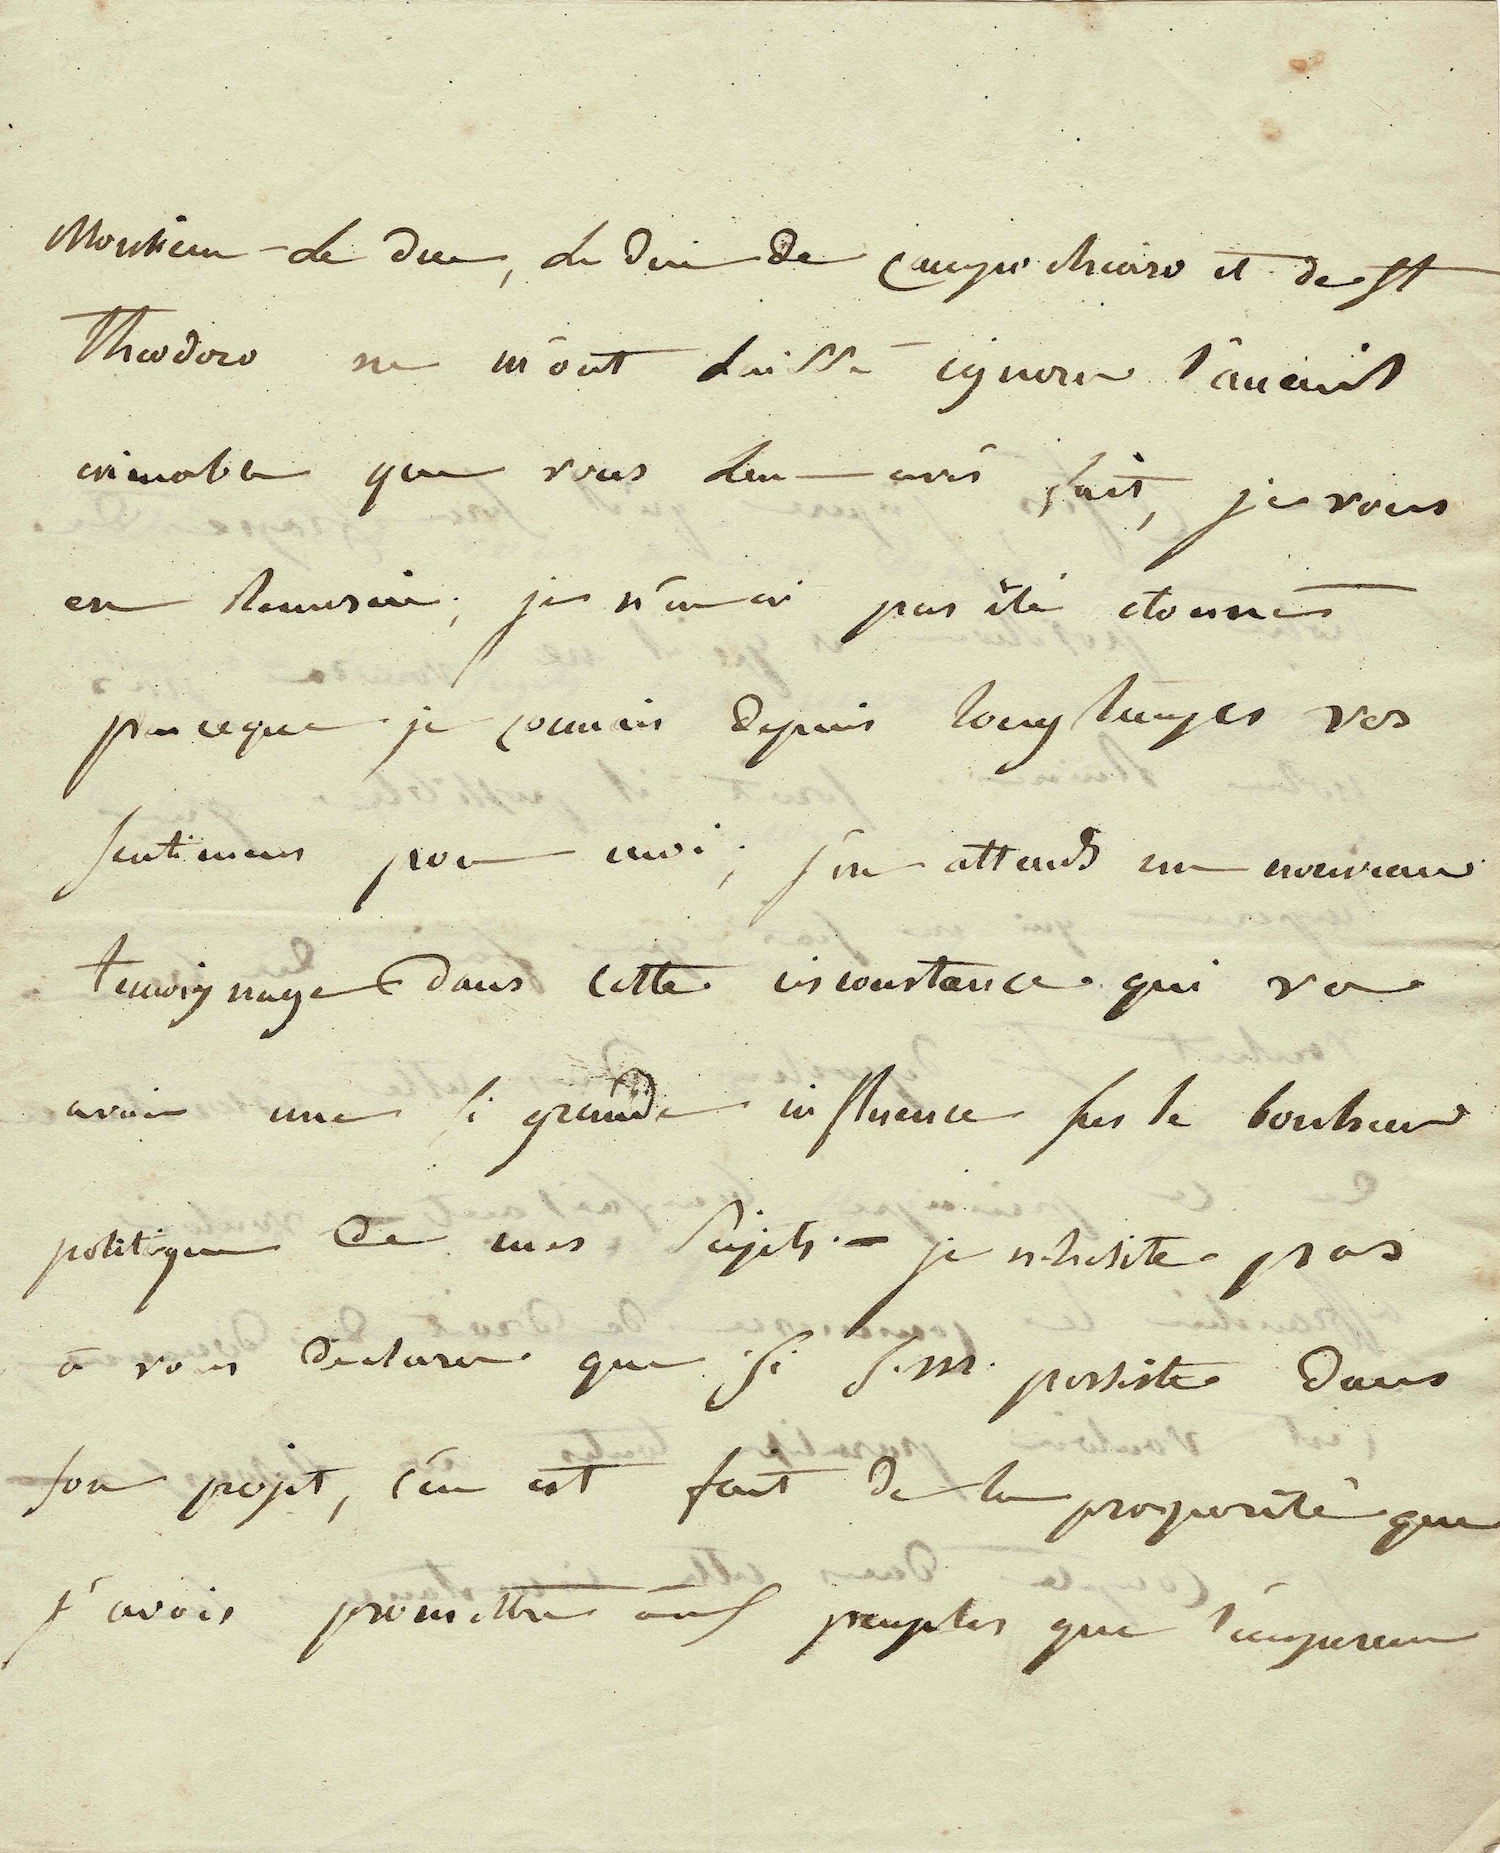 Monsieur le duc, le duc de Campochiaro et de St
Theodoro ne m'ont laissé ignorer l'acueil
aimable que vous leur avés fait, je vous
en remercie, je n'en ai pas été etonnés
parceque je connais depuis longtemps vos
sentimens pour moi; j'en attends un nouveau
temoignage dans cette circonstance qui va
avoir une si grande influence sur le bonheur
politique de mes sujets. je n'hesite pas
à vous declarer que si S. M. persiste dans
son projet, c'en est fait de la prosperité que
j'avois promettre aux peuples que l'empereur